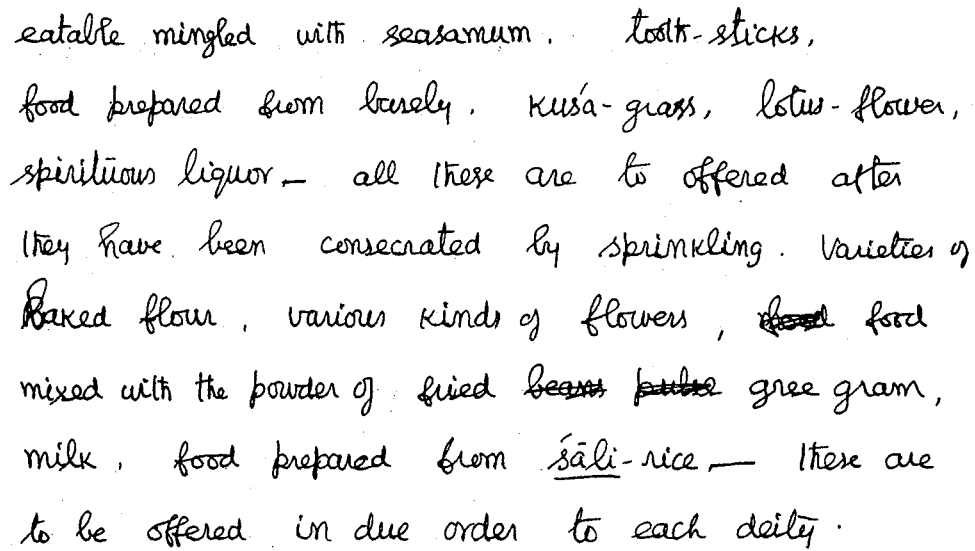 eatable mingled with seasamum. tooth-sticks,
food prepared from barely. kuśa-grass, lotus-flower,
spirituous liquor — all these are to offered after
they have been consecrated by sprinkling. Varieties of
Baked flour, various kinds of flowers, food
mixed with the powder of fried beans pulse gree gram,
milk, food prepared from śāli-rice, — these are
to be offered in due order to each deity.